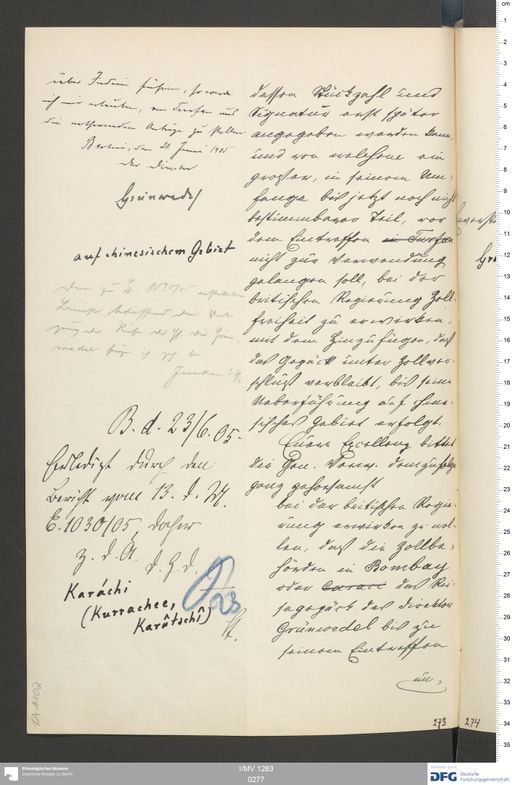 über Indien führen, so werde
ich mir erlauben, von Turfan aus
die notwendigen Anträge zu stellen.
Berlin, den 21 Juni 1905
Der Direktor
Grünwedel
auf chinesischem Gebiet
B. d. 23/6.05.
Erledigt durch den
Bericht vom 13. d. M.
E. 1030/05, daher
z. d. A.
Karáchi
(Kurrachee,
Karâtschî)
dessen Stückzahl und
Signatur erst später
angegeben werden kann
und von welchem ein
grosser, in seinem Um-
fange bis jetzt noch nicht
bestimmbarer Teil, vor
dem Eintreffen in Turfan
nicht zur Verwendung
gelangen soll, bei der
britischen Regierung Zoll-
freiheit zu erwirken,
mit dem Hinzufügen, daß
das Gepäck unter Zollver-
schluß verbleibt, bis seine
Ueberführung auf chine-
sisches Gebiet erfolgt.
Euere Excellenz bittet
die Gen. Verw. demzufolge
ganz gehorsamst
bei der britischen Regie-
rung erwirken zu wol-
len, daß die Zollbe-
hörden in Bombay
oder das Rei-
segepäck des Direktors
Grünwedel bis zu
seinem Eintreffen
273
274
1A 1102
Ethnologisches Museum
Staatliche Museen zu Berlin
I/MV 1263
0277
DFG Deutsche
Forschungsgemeinschaft